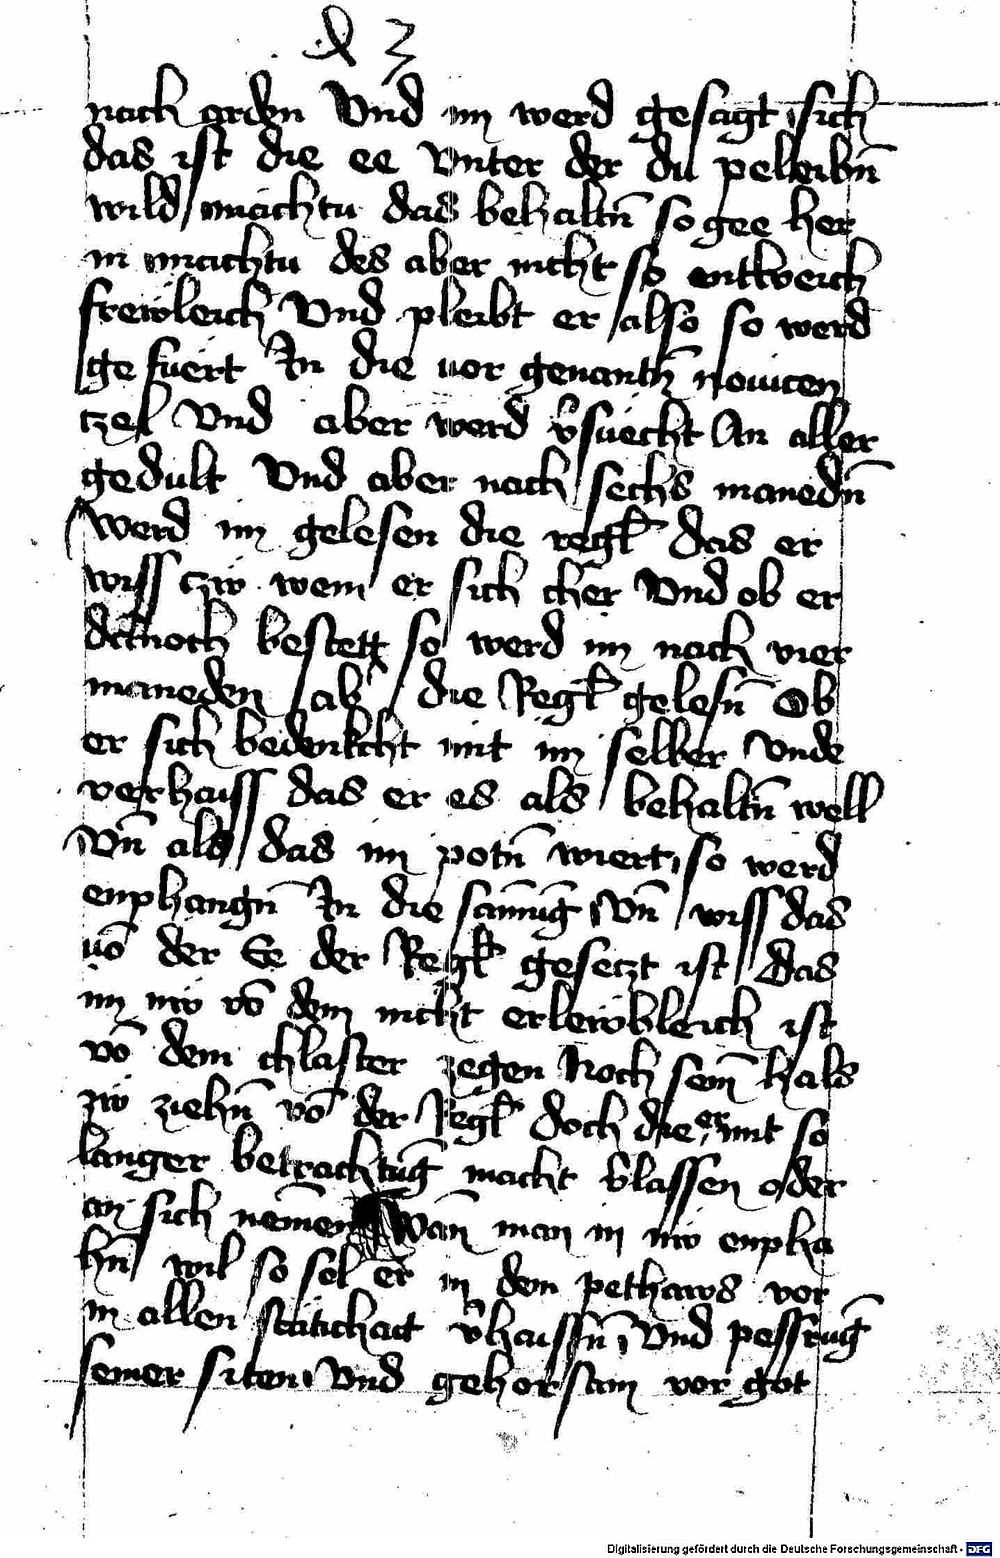 nach orden Vnd im werd gesagt sich
das ist die ee Vnter der du pelleibn̄
wild machtu das behaltn̄ so gee her
in machtu des aber nicht so entweich
freileich Vnd pleibt er also so werd
gefuert In die vor genantn̄ nouicen
czel Vnd aber werd v̄suecht An aller
gedult Vnd aber nach sechs manedn̄
werd im gelesen die regl̄ das er
wiss czw wem er sich cher Vnd ob er
dennoch bestett so werd im nach vier
maneden ab̄ die Regl̄ gelesn̄ Ob
er sich bedenkcht mit im selber Vnde
verhaiss das er es als behaltn̄ well
Vn̄ als das im potn̄ wiert so werd
enphangn̄ In die sam̄nūg Vn̄ wiss das
vō der Ee der Regl̄ gesetzt ist das
im nw vō dem nicht erlewbleich ist
vō dem chloster zegen Noch sein̄ hals
zw ziehn̄ vō der Regl̄ doch die er mit so
langer betrachtūg macht v̄lassen oder
an sich nemen Wan̄ man in nw enpha
hn̄ wil so sol er in dem pethaws vor
in allen statichait v̄haissn̄ Vnd pessrūg
seiner siten Vnd gehorsam vor got
Digitalisierung gefördert durch die Deutsche Forschungsgemeinschaft - DFG